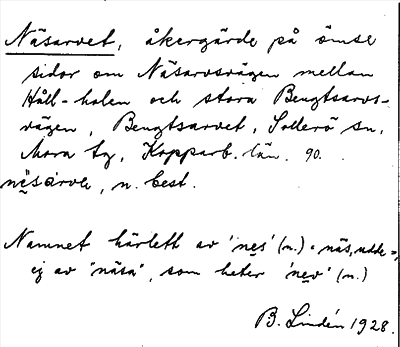 Näsarvet, åkergärde på ömse
sidor om Näsarvsvägen mellan
Håll-holen och stora Bengtsarvs-
vägen, Bengtsarvet, Sollerö sn,
Mora tg, Kopparb. län. 90.
nẹ̈sarvẹ, n. best.
Namnet härlett av 'nẹs' (n.) "näs, udde",
ej av "näsa", som heter 'nẹv' (n.)
B. Lindén 1928.